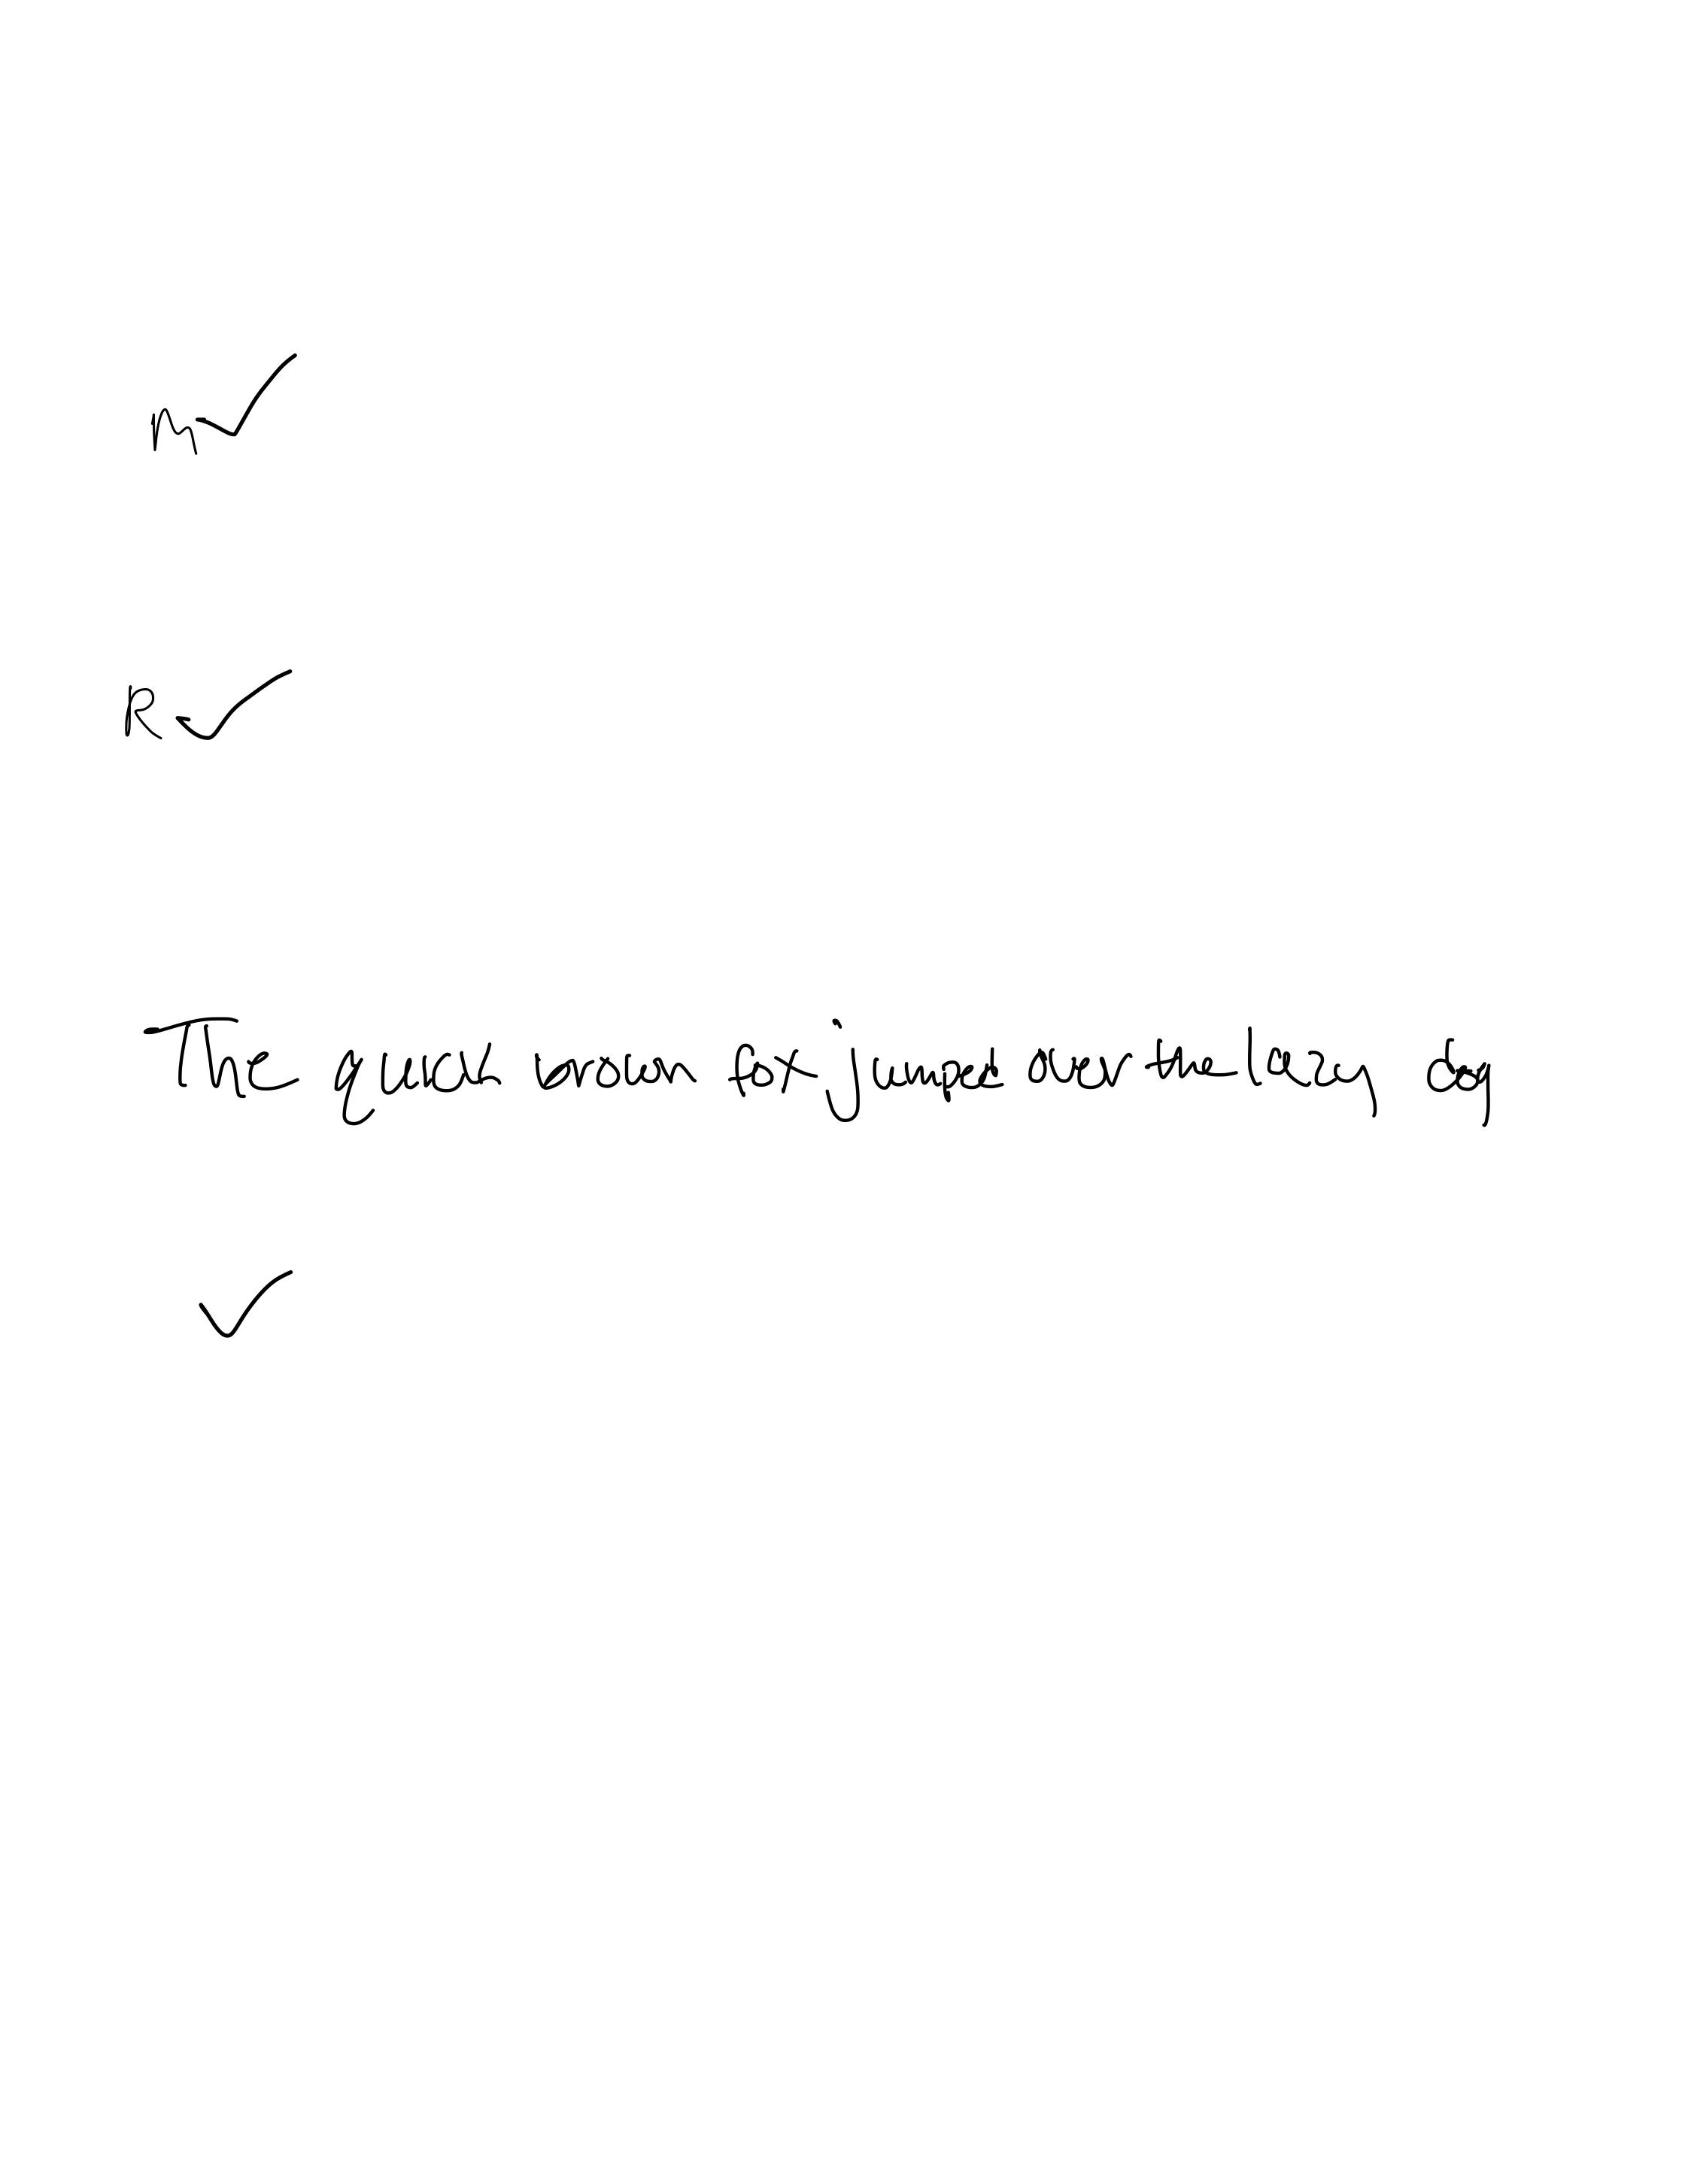 M ✓
R ✓
The quick brown fox jumped over the lazy dog
✓